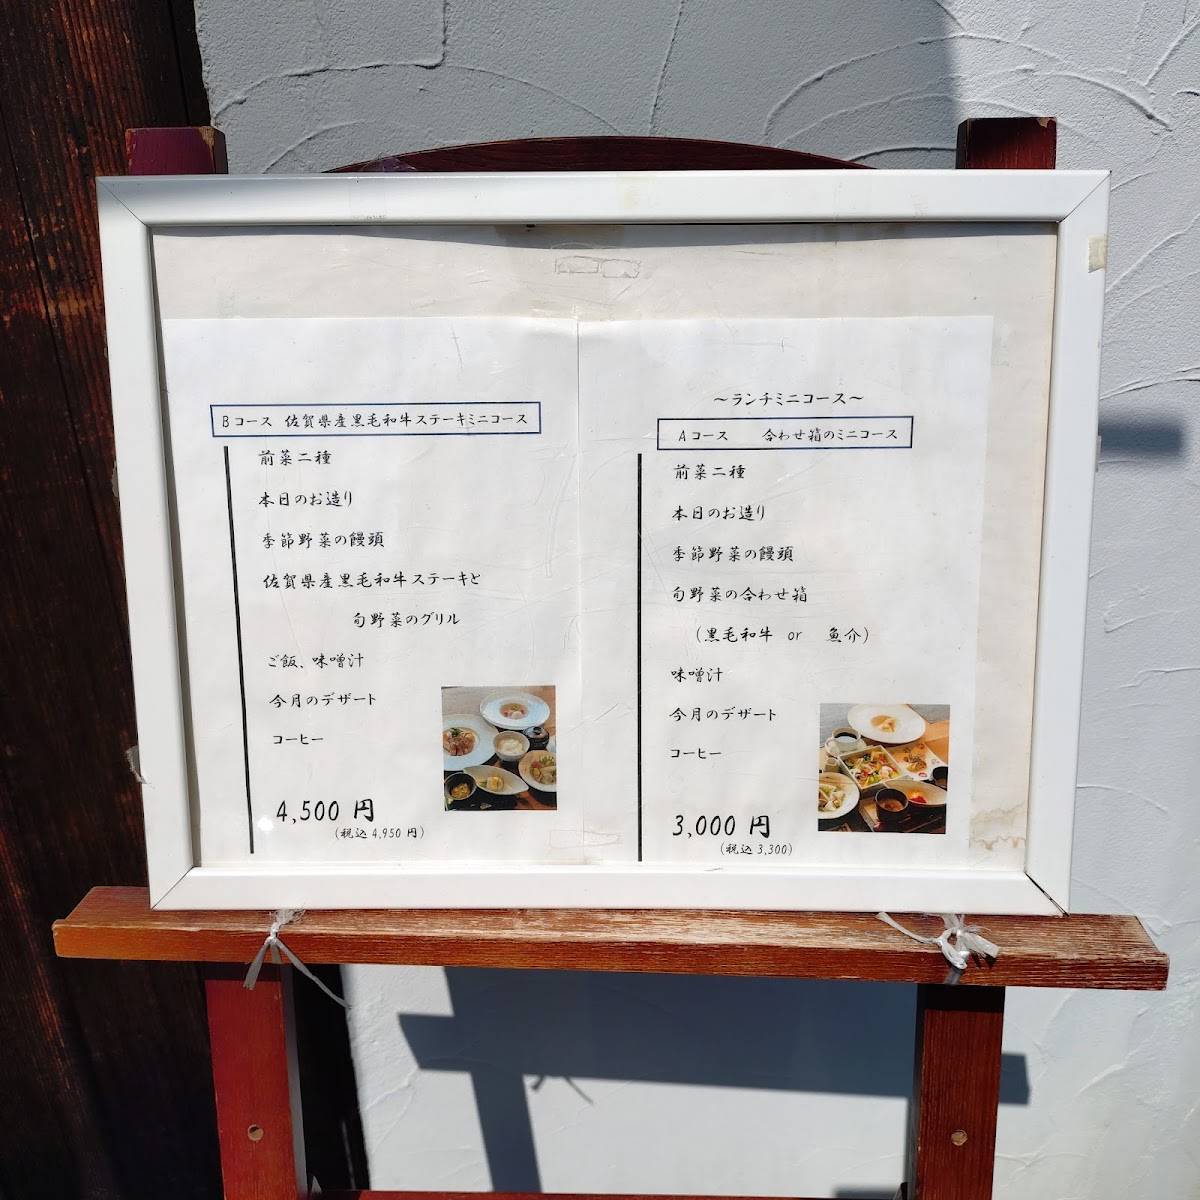 ～ランチミニコース～
Aコース 合わせ箱のミニコース
前菜二種
本日のお造り
季節野菜の饅頭
旬野菜の合わせ箱
(黒毛和牛 or 魚介)
味噌汁
今月のデザート
コーヒー
3,000 円
(税込 3,300)
Bコース 佐賀県産黒毛和牛ステーキミニコース
前菜二種
本日のお造り
季節野菜の饅頭
佐賀県産黒毛和牛ステーキと
旬野菜のグリル
ご飯、味噌汁
今月のデザート
コーヒー
4,500 円
(税込 4,950 円)